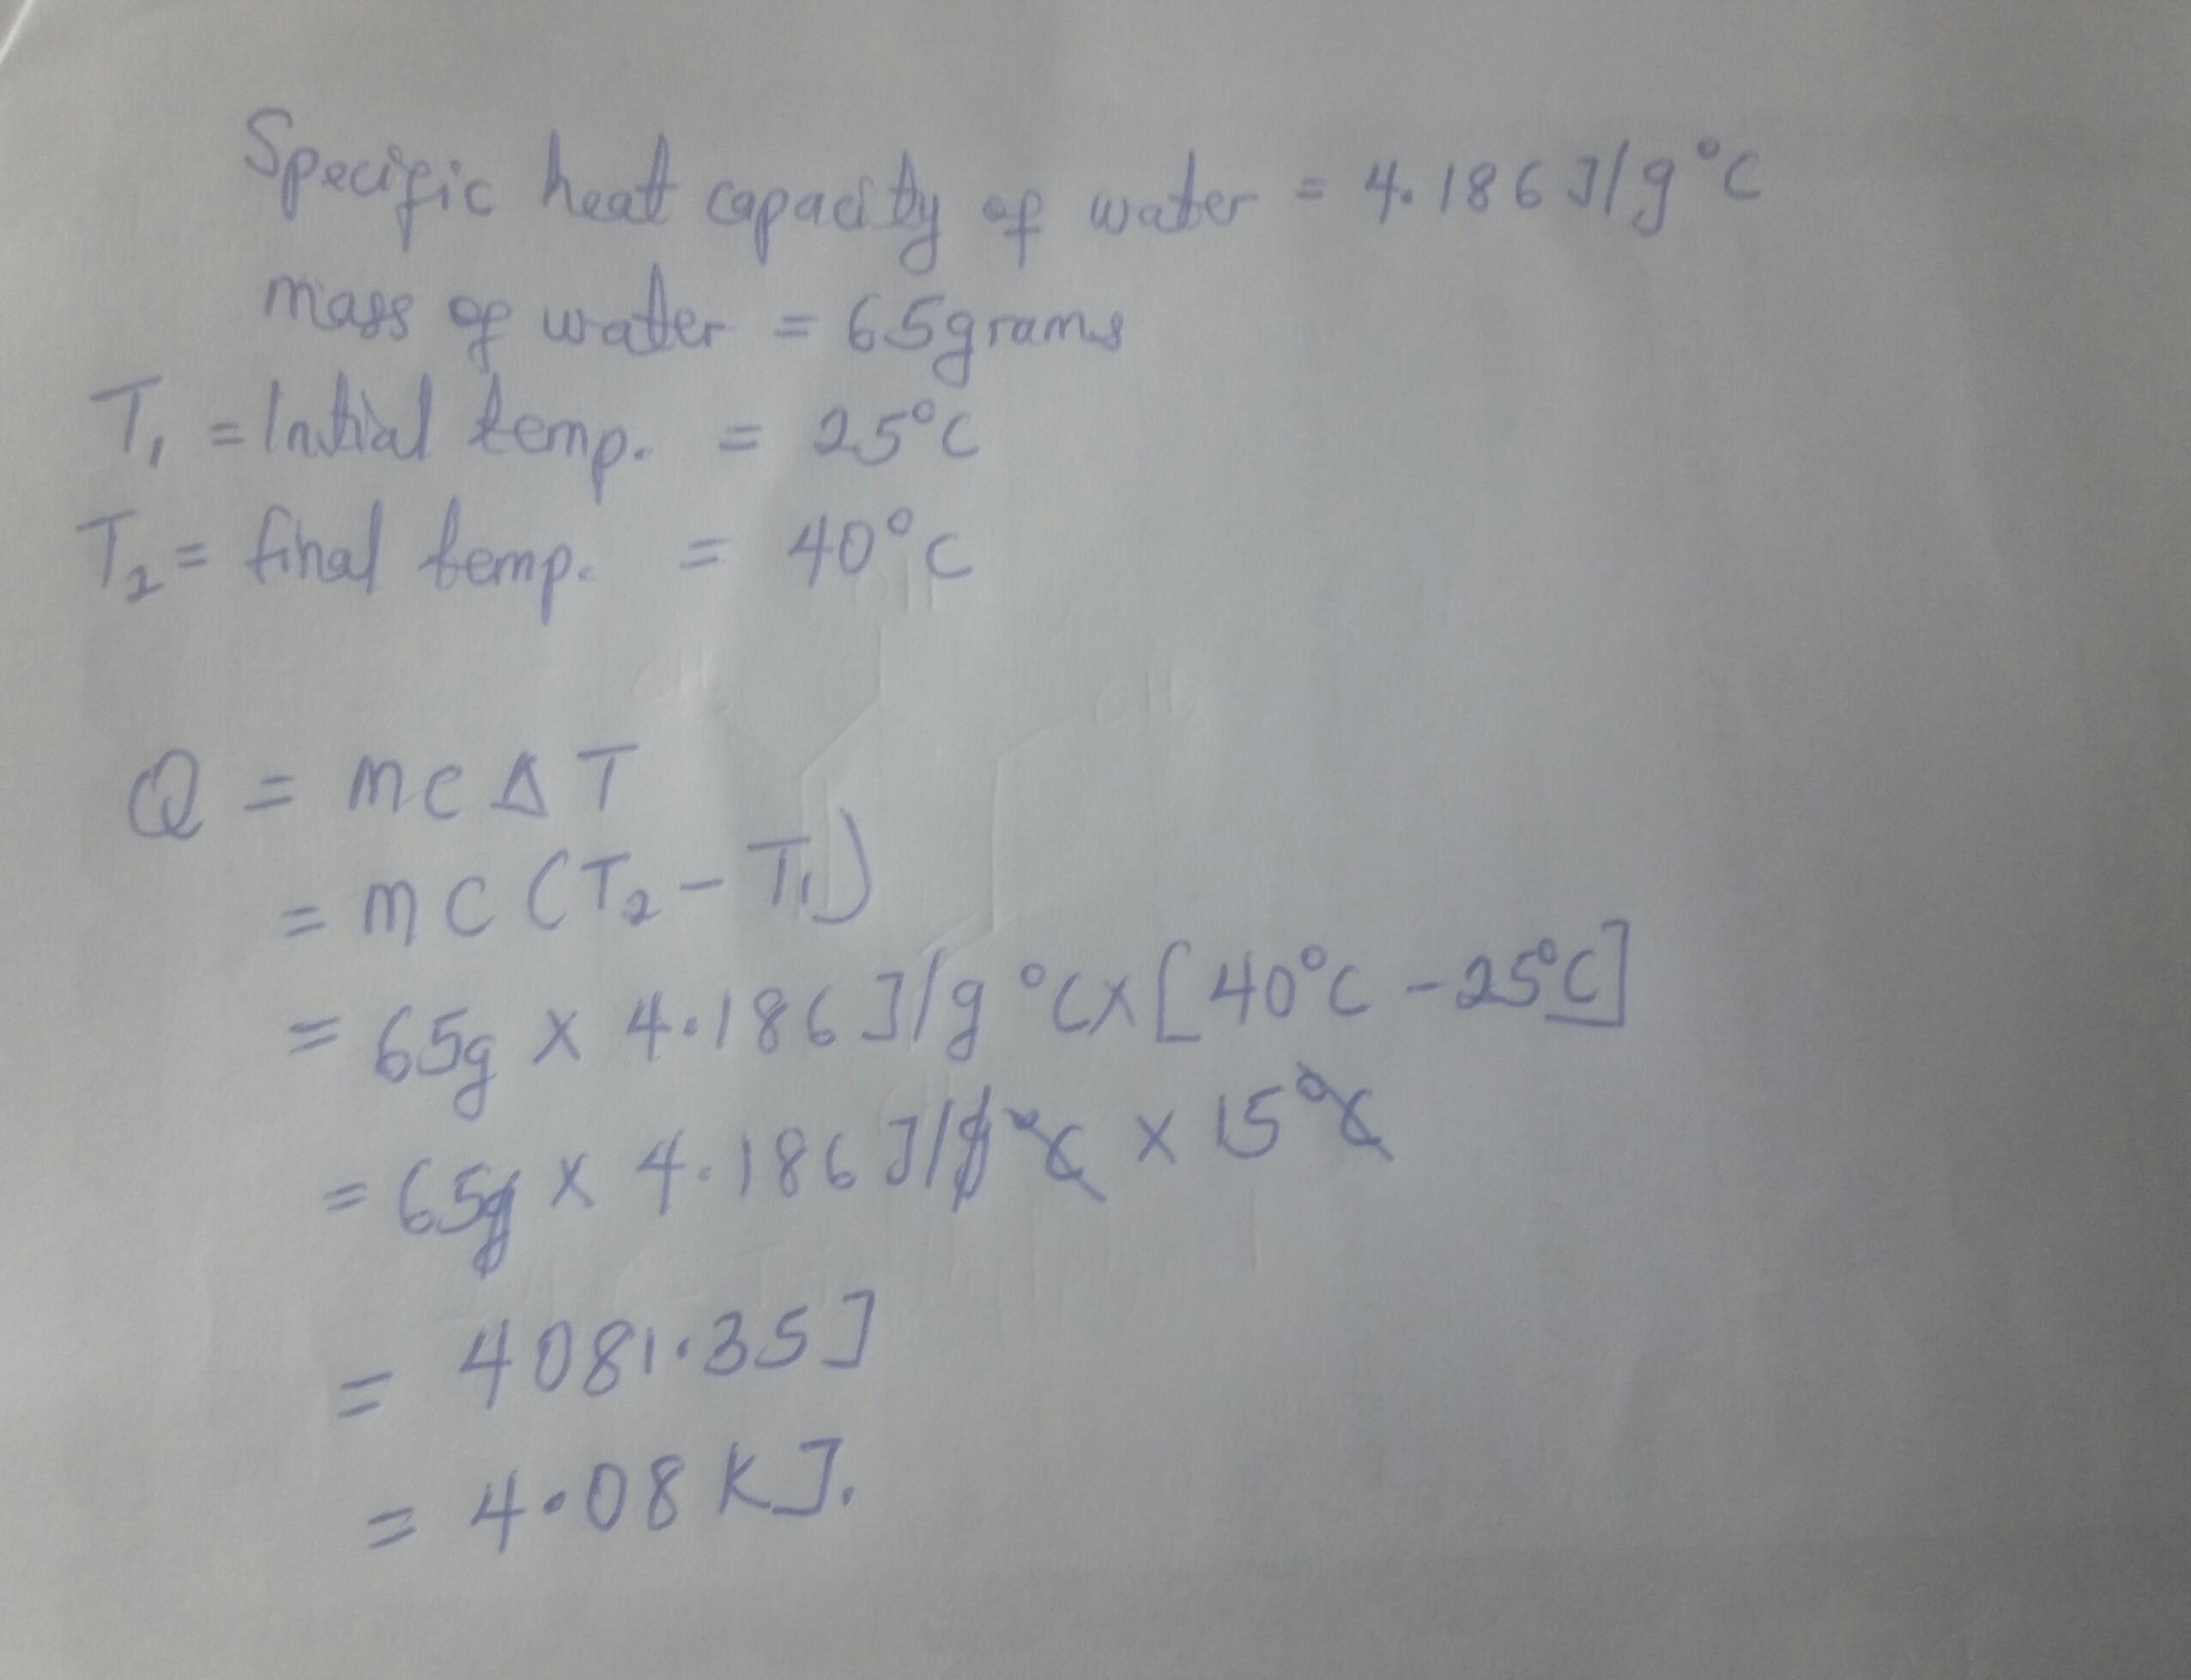 Specific heat capacity of water = 4.186 J/g°C
mass of water = 65grams
T₁ = Initial temp. = 25°C
T₂ = final temp. = 40°C
Q = mcΔT
= mc(T₂ - T₁)
= 65g x 4.186 J/g °C x [40°C - 25°C]
= 65g x 4.186 J/g °C x 15°C
= 4081.35J
= 4.08 KJ.